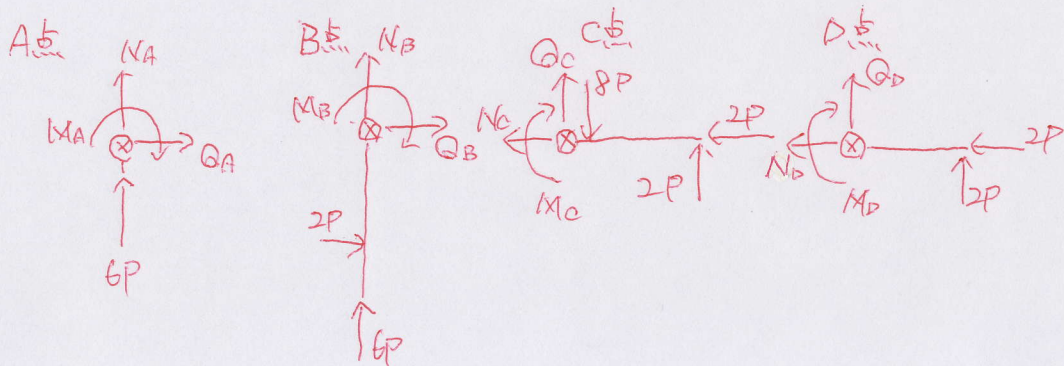 A点
NA
MA
QA
6P
B点
NB
MB
QB
2P
6P
C点
QC
8P
NC
MC
2P
2P
D点
QD
ND
MD
2P
2P